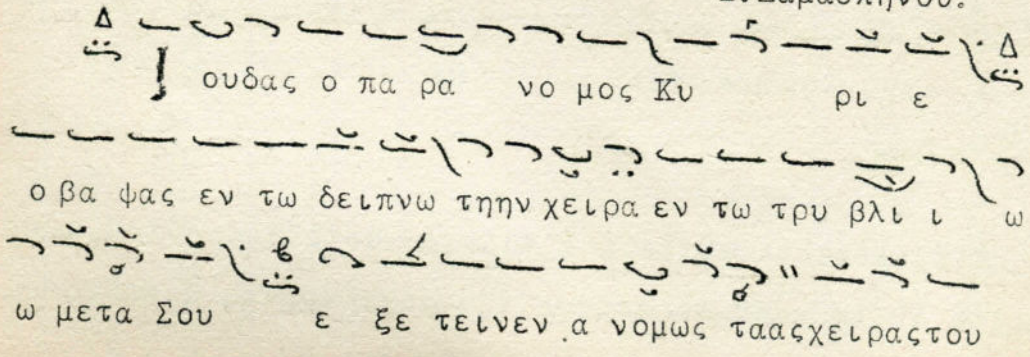 Δ Δ
Ιουδας ο πα ρα νο μος Κυ ρι ε
ο βα ψας εν τω δειπνω τηην χειρα εν τω τρυ βλι ι ω
ω μετα Σου ε ξε τεινεν α νομως ταας χειρας του